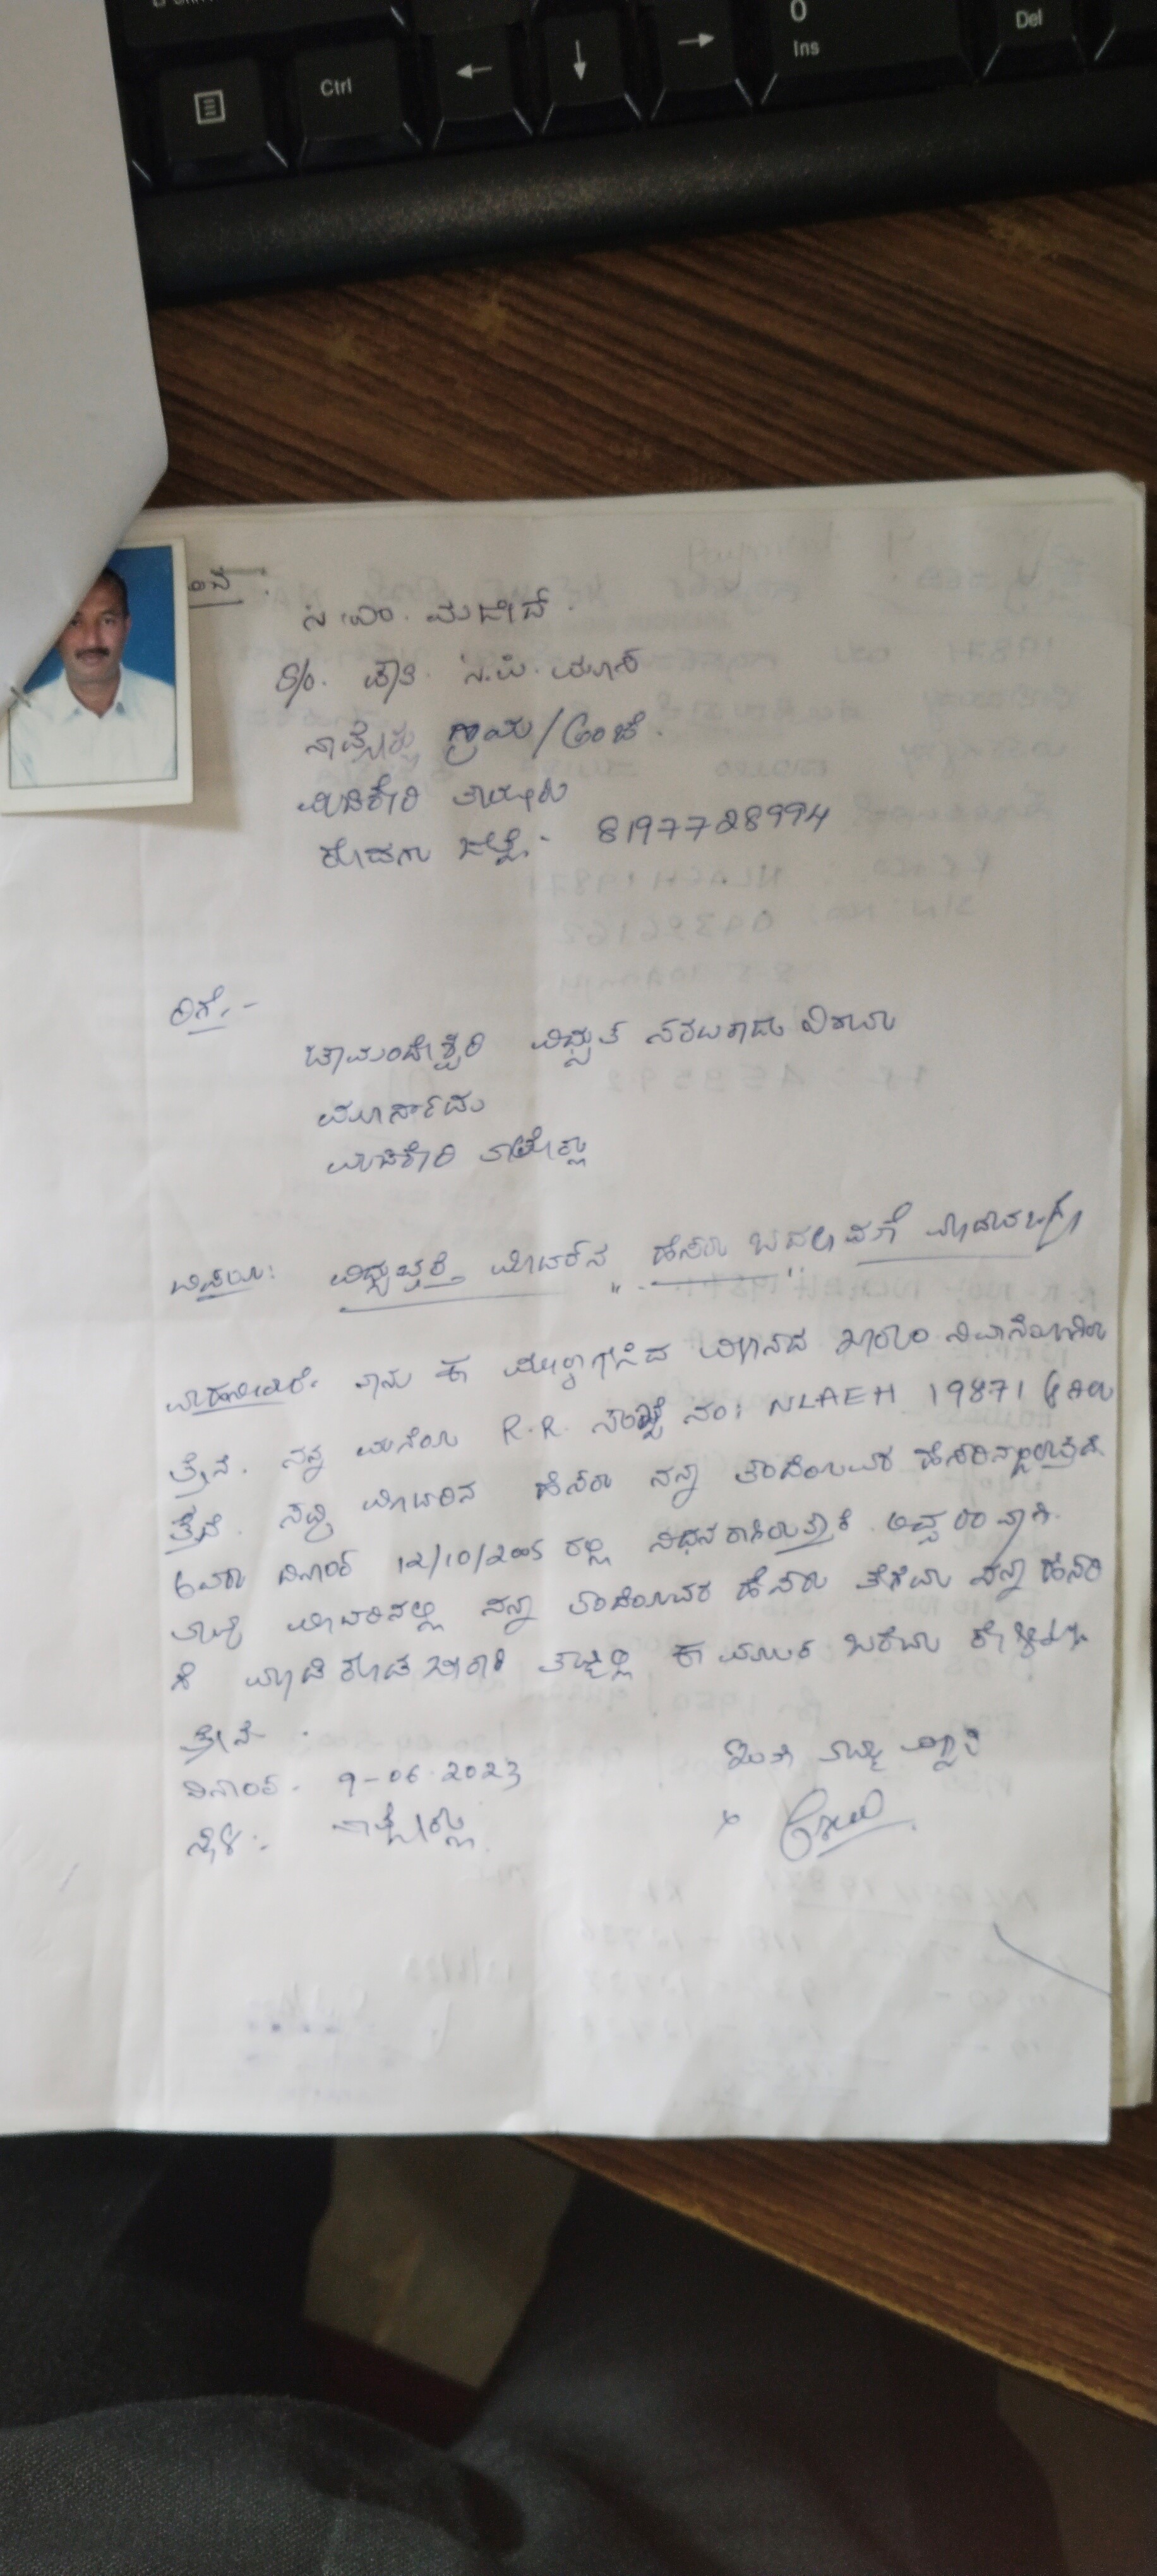 Ctrl
0
Ins
Del
ಇಂದ
ಸಿ.ಎಂ. ಮಜೀದ್.
S/o.
ನಾಪೋಕ್ಲು ಗ್ರಾಮ/ಅಂಚೆ.
ಮಡಿಕೇರಿ ತಾಲ್ಲೂಕು
ಕೊಡಗು ಜಿಲ್ಲೆ.- 8197728994
ರಿಗೆ.-
ಚಾಮುಂಡೇಶ್ವರಿ ವಿದ್ಯುತ್ ಸರಬರಾಜು
ಮೂರ್ನಾಡು
ಮಡಿಕೇರಿ ತಾಲ್ಲೂಕು
ವಿಷಯ: ಮೀಟರ್‌ನ "ಹೆಸರು ಬದಲಾವಣೆ" ಮಾಡುವ ಬಗ್ಗೆ
ಮಾನ್ಯರೇ. ನಾನು ಈ ಮೇಲ್ಕಾಣಿಸಿದ ವಿಳಾಸದ ಖಾಯಂ ನಿವಾಸಿಯಾಗಿರು
ತ್ತೇನೆ. ನನ್ನ ಮನೆಯ R.R. ಸಂಖ್ಯೆ ನಂ: NLAEH 19871 ಆಗಿರು
ತ್ತದೆ. ಸದ್ರಿ ಮೀಟರಿನ ಹೆಸರು ನನ್ನ ತಂದೆಯವರ ಹೆಸರಿನಲ್ಲಿರುತ್ತದೆ.
ಅವರು ದಿನಾಂಕ 12/10/2005 ರಲ್ಲಿ ನಿಧನರಾಗಿರುತ್ತಾರೆ. ಆದ್ದರಿಂದಾಗಿ.
ಮೀಟರಿನಲ್ಲಿ ನನ್ನ ತಂದೆಯವರ ಹೆಸರು ತೆಗೆದು ನನ್ನ ಹೆಸರಿ
ಗೆ ಮಾಡಿಕೊಡಬೇಕಾಗಿ ತಮ್ಮಲ್ಲಿ ಈ ಮೂಲಕ ಕೇಳಿಕೊಳ್ಳು
ತ್ತೇನೆ.
ದಿನಾಂಕ. 9-06-2023
ಇಂತಿ ತಮ್ಮ ವಿಶ್ವಾಸಿ
ಸ್ಥಳ:- ನಾಪೋಕ್ಲು
x